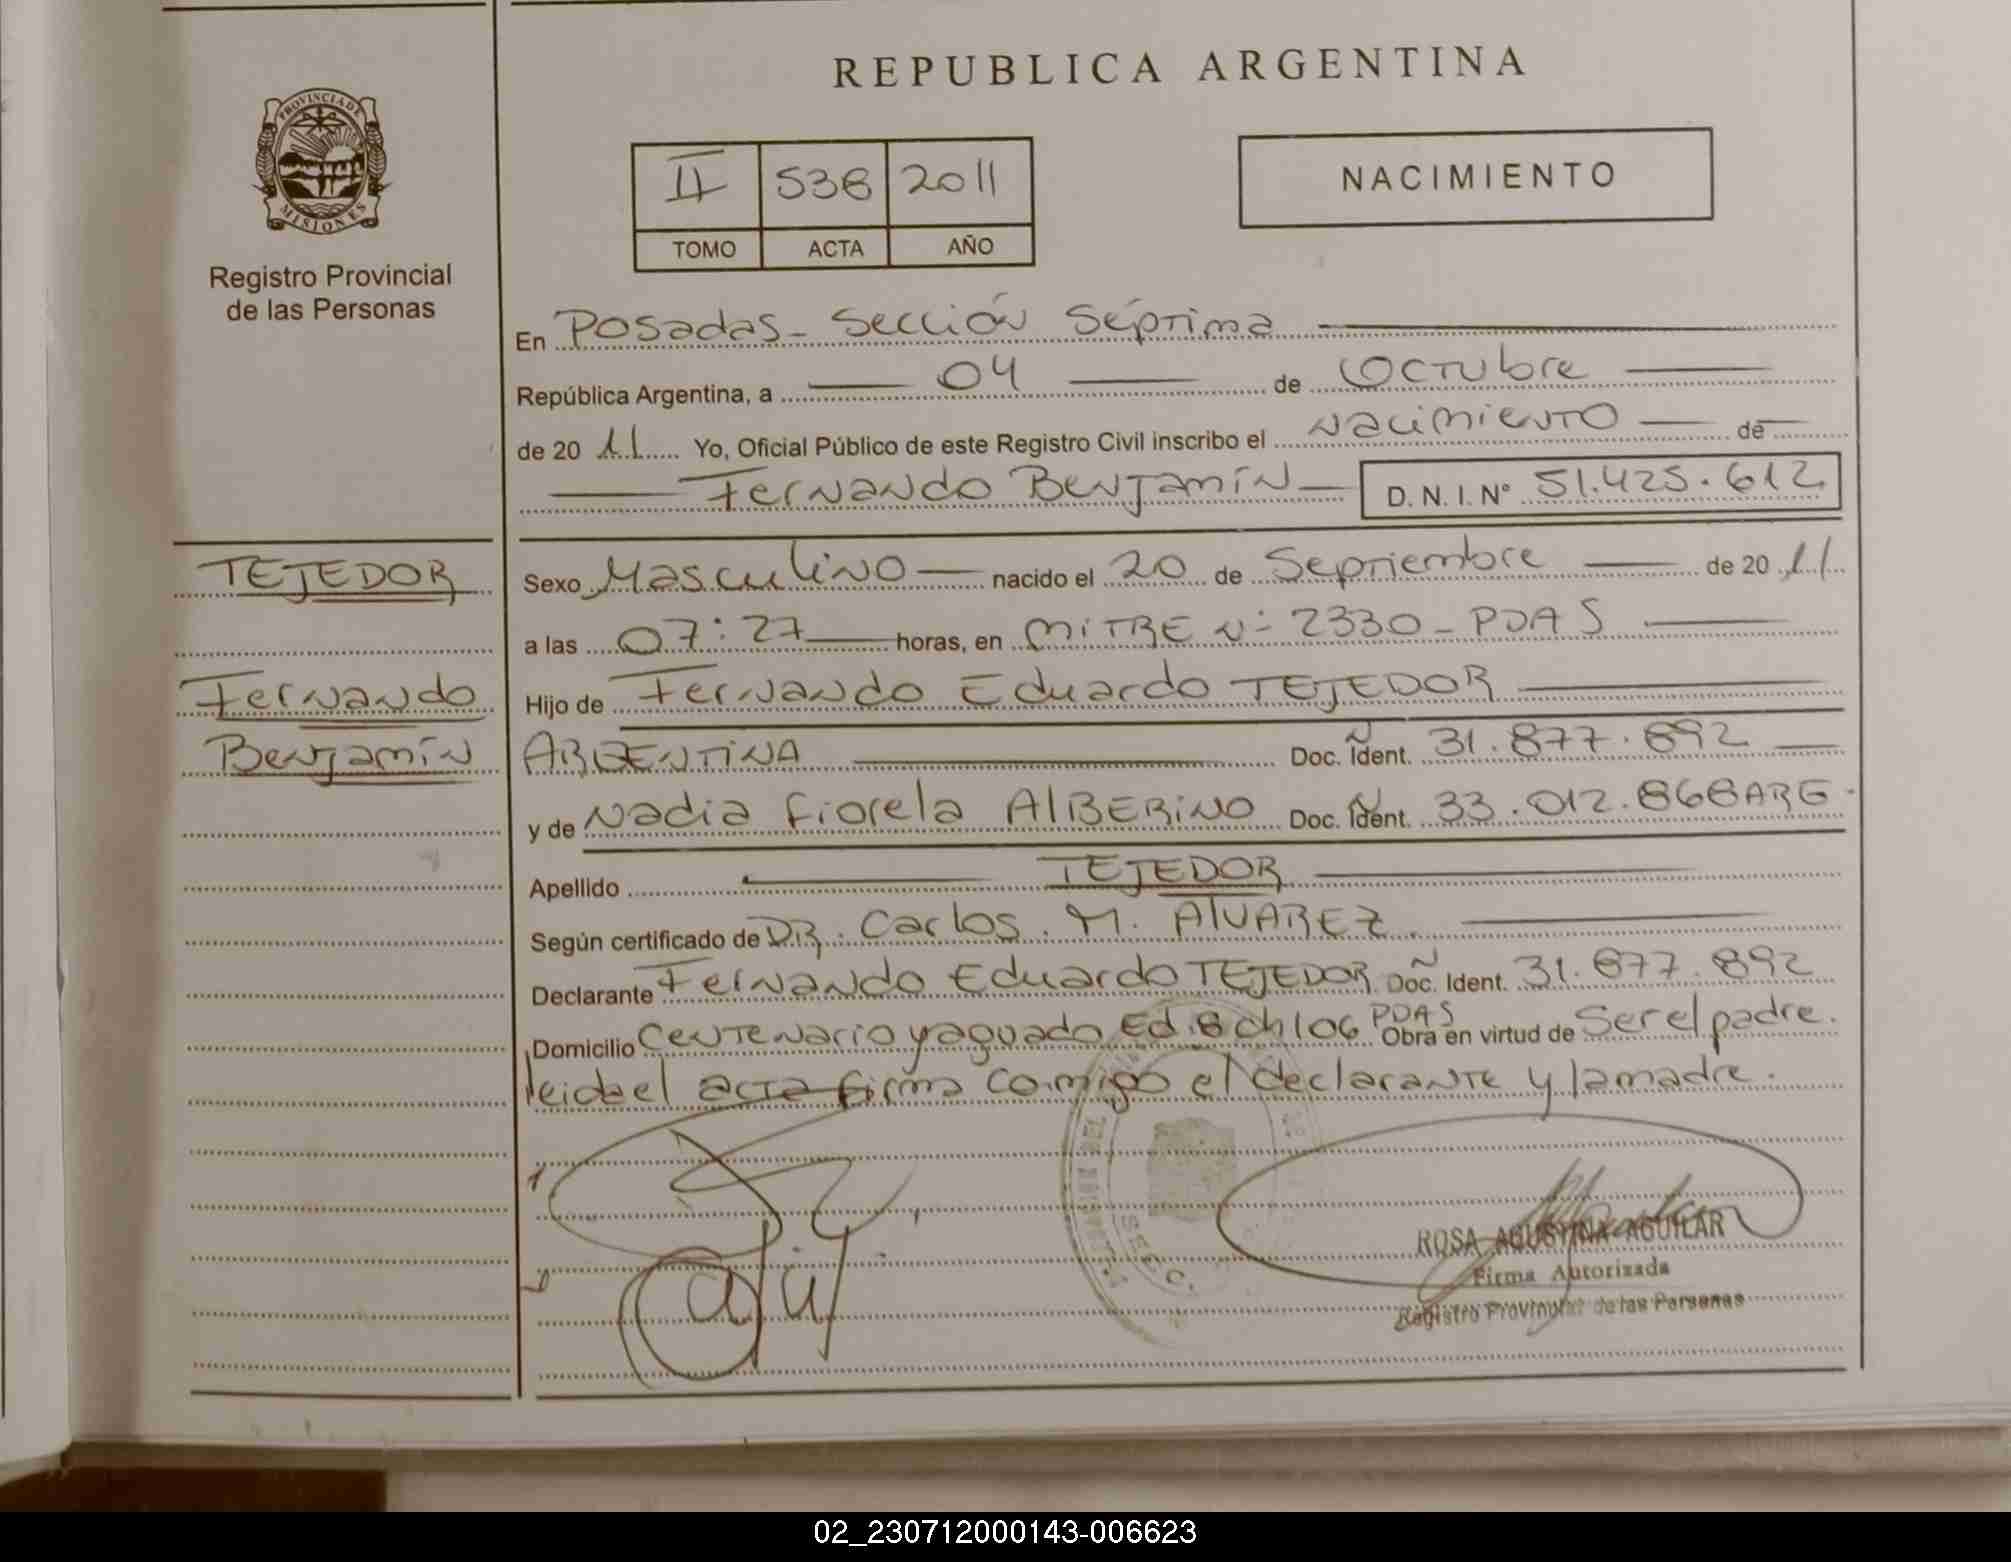 REPUBLICA ARGENTINA
PROVINCIA DE
MISIONES
Registro Provincial
de las Personas
II 538 2011
TOMO ACTA AÑO
NACIMIENTO
En Posadas - Sección Séptima
República Argentina, a 04 de Octubre
de 2011 Yo, Oficial Público de este Registro Civil inscribo el Nacimiento de
Fernando Benjamín D.N.I. Nº 51.425.612
TEJEDOR
Fernando
Benjamín
Sexo Masculino nacido el 20 de Septiembre de 2011
a las 07:27 horas, en MITRE Nº 2330 - PDAS
Hijo de Fernando Eduardo TEJEDOR
ARGENTINA Doc. Ident. 31.877.892
y de Nadia Fiorela AlBERINO Doc. Ident. 33.012.868 ARG.
Apellido TEJEDOR
Según certificado de DR. Carlos. M. AlVAREZ.
Declarante Fernando Eduardo TEJEDOR Doc. Ident. 31.877.892
Domicilio Centenario y aguado Ed. 8 ch 106 PDAS Obra en virtud de Ser el padre.
leida el acta firma comigo el declarante y la madre.
ROSA AGUSTINA AGUILAR
Firma Autorizada
Registro Provincial de las Personas
02_230712000143-006623